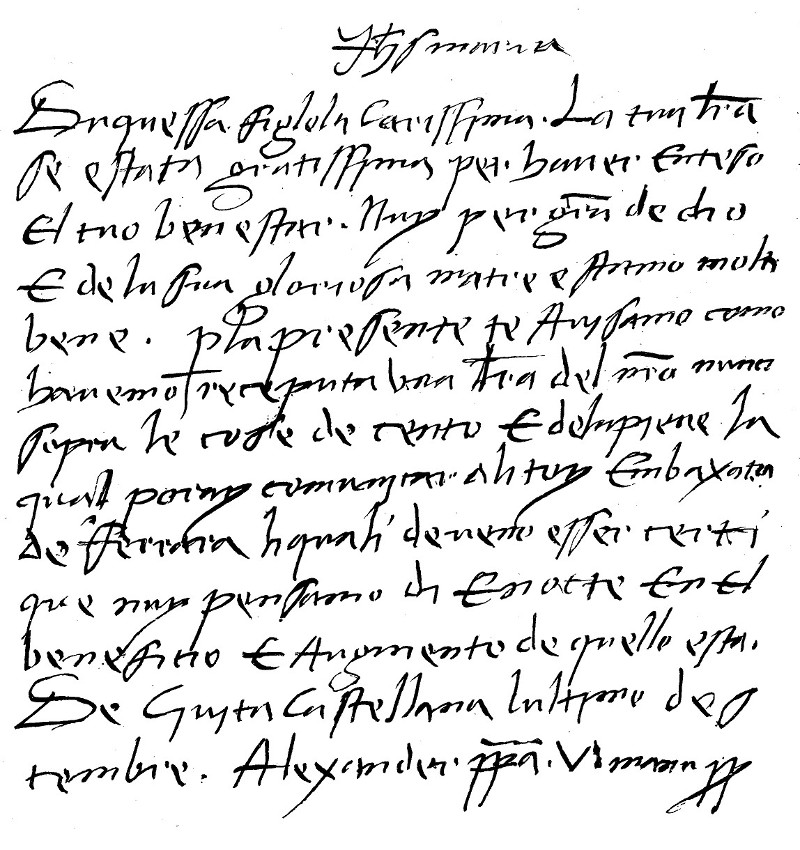 Jhs maria
Duquessa figlola Carissima. La tua lra
se estata gratissima per haver Enteso
El tuo benestar. Nuy per gra de dio
E de la sua gloriosa matre e stamo molto
bene. pla presente te Avysamo como
havemo receputa una lra del nro nuncio
sopra le cose de cento E de la pieve la
qual poray comunicar ali toy Embaxatori
De Ferrara li quali deveno esser certi
que nuy pensamo di E nocte En El
beneficio E Augmento de quello esta.
De Civita Castellana lultimo de
tembre. Alexander ppa. VI manu pp